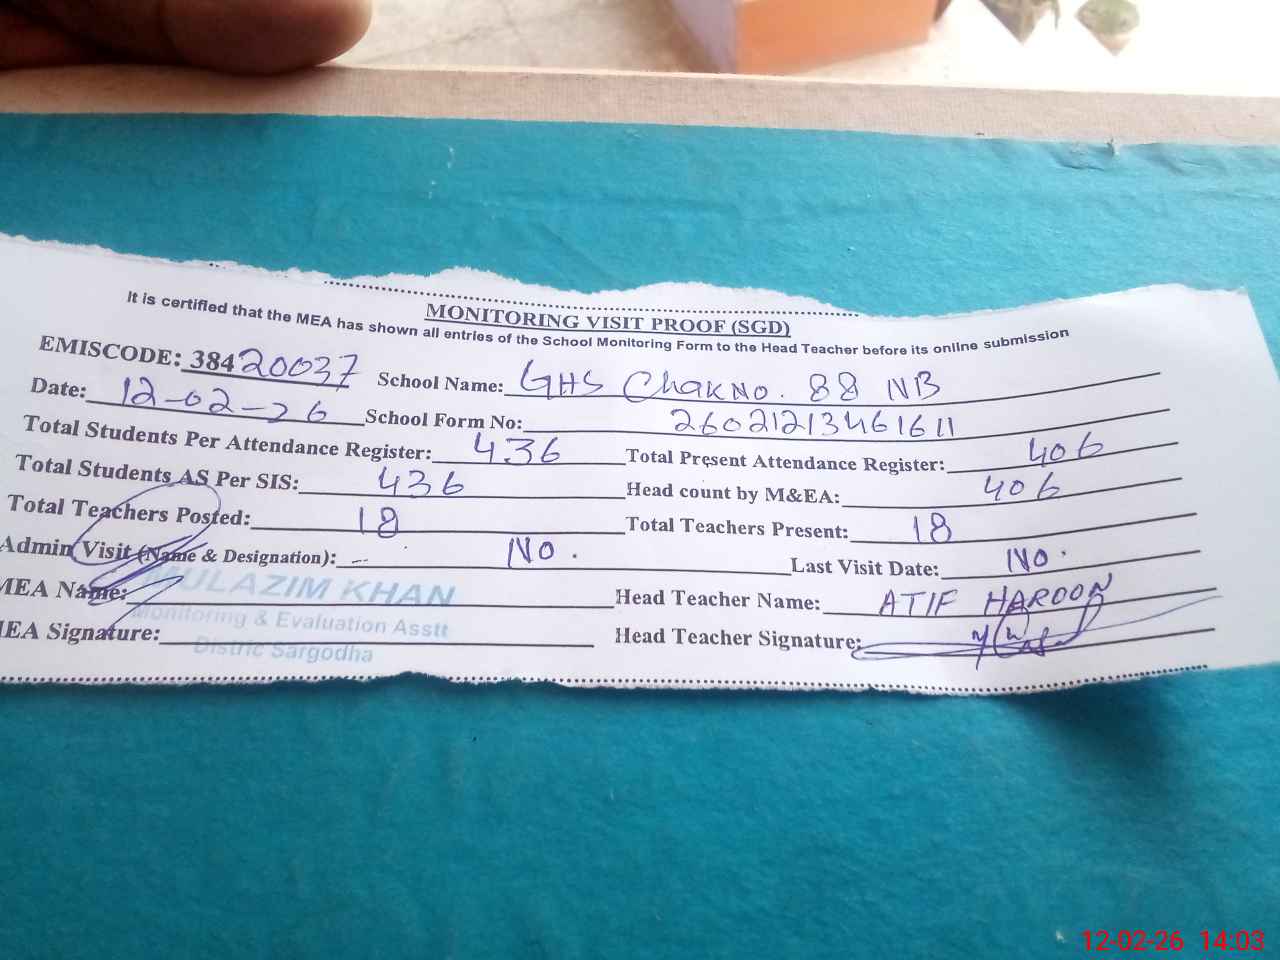 MONITORING VISIT PROOF (SGD)
It is certified that the MEA has shown all entries of the School Monitoring Form to the Head Teacher before its online submission
EMISCODE: 38420037 School Name: GHS Chak No. 88 NB
Date: 12-02-26 School Form No: 26021213461611
Total Students Per Attendance Register: 436 Total Present Attendance Register: 406
Total Students AS Per SIS: 436 Head count by M&EA: 406
Total Teachers Posted: 18 Total Teachers Present: 18
Admin Visit (Name & Designation): -- No. Last Visit Date: No.
MEA Name: MULAZIM KHAN Head Teacher Name: ATIF HAROON
Monitoring & Evaluation Asstt
MEA Signature: Head Teacher Signature:
Distric Sargodha
12-02-26 14:03